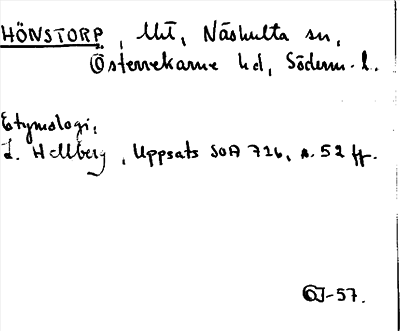 HÖNSTORP, Utt, Näshulta sn,
Österrekarne hd, Söderm. l.
Etymologi:
L. Hellberg, Uppsats SOA 726, s. 52 ff.
-57.